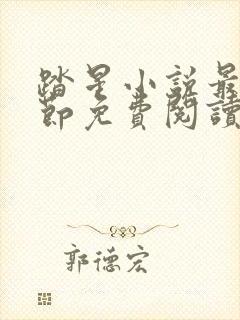 踏星小说最
節免費閱讀
郭德宏